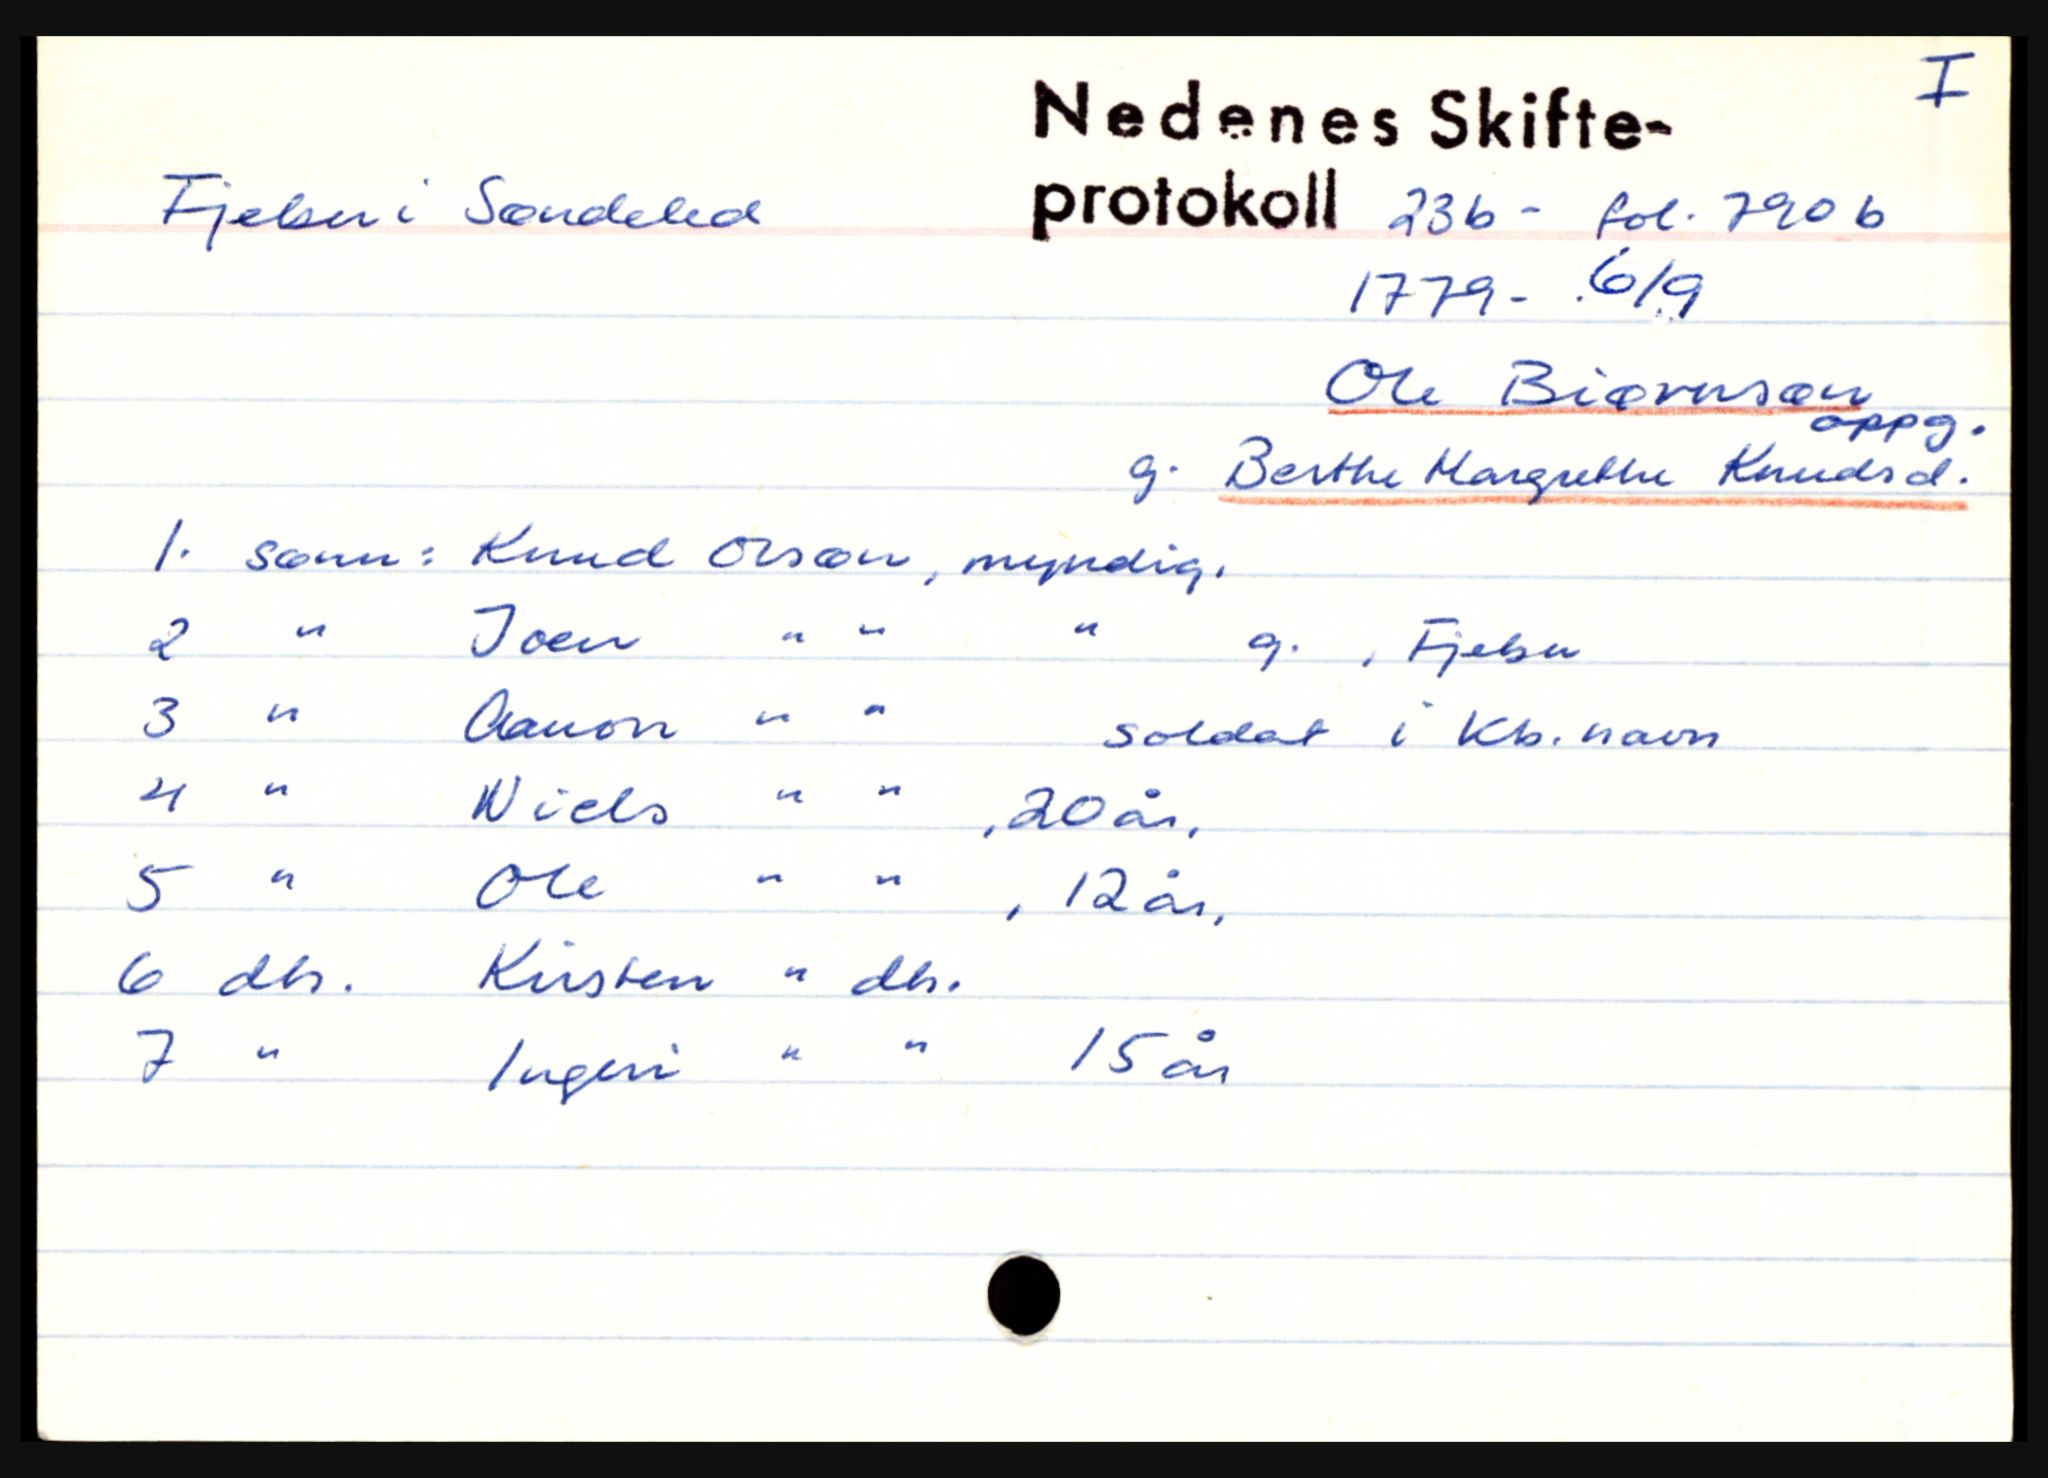 I
Nedenes Skifte-
Fjeber i Søndeled protokoll 23b - fol. 790b
1779 - 6/9
Ole Biørnsøn
oppg.
g. Berthe Margrethe Knudsd.
1. sønn: Knud Olsøn, myndig.
2 " Joen " " " g., Fjeber
3 " Aanon " " soldat i Kb.navn
4 " Niels " " , 20 år,
5 " Ole " " , 12 år,
6 dtr. Kirsten " dtr.
7 " Ingeri " " 15 år